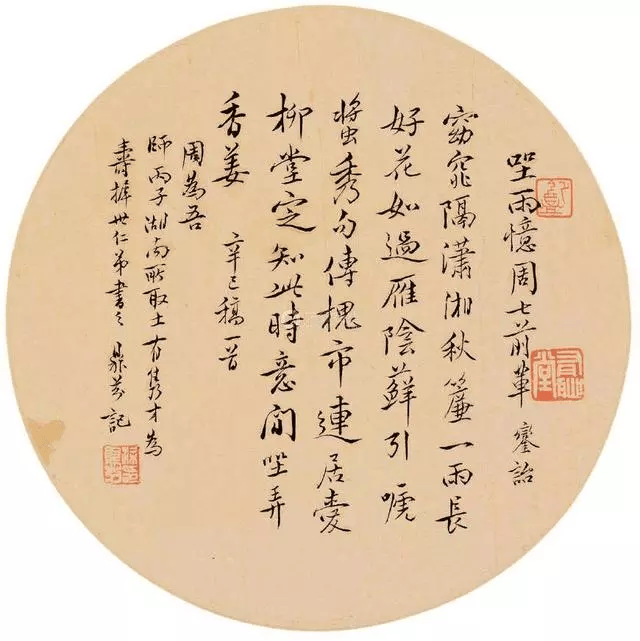 坐雨憶周七前輩 鑾詒
窈窕隔瀟湘秋簾一雨長
好花如過雁陰蘚引嗁
螀秀句傳槐市連居愛
柳堂定知此時意閒坐弄
香姜 辛巳稿一首
周為吾
師丙子湖南所取士有雋才為
壽樟世仁弟書之 鼎芬記